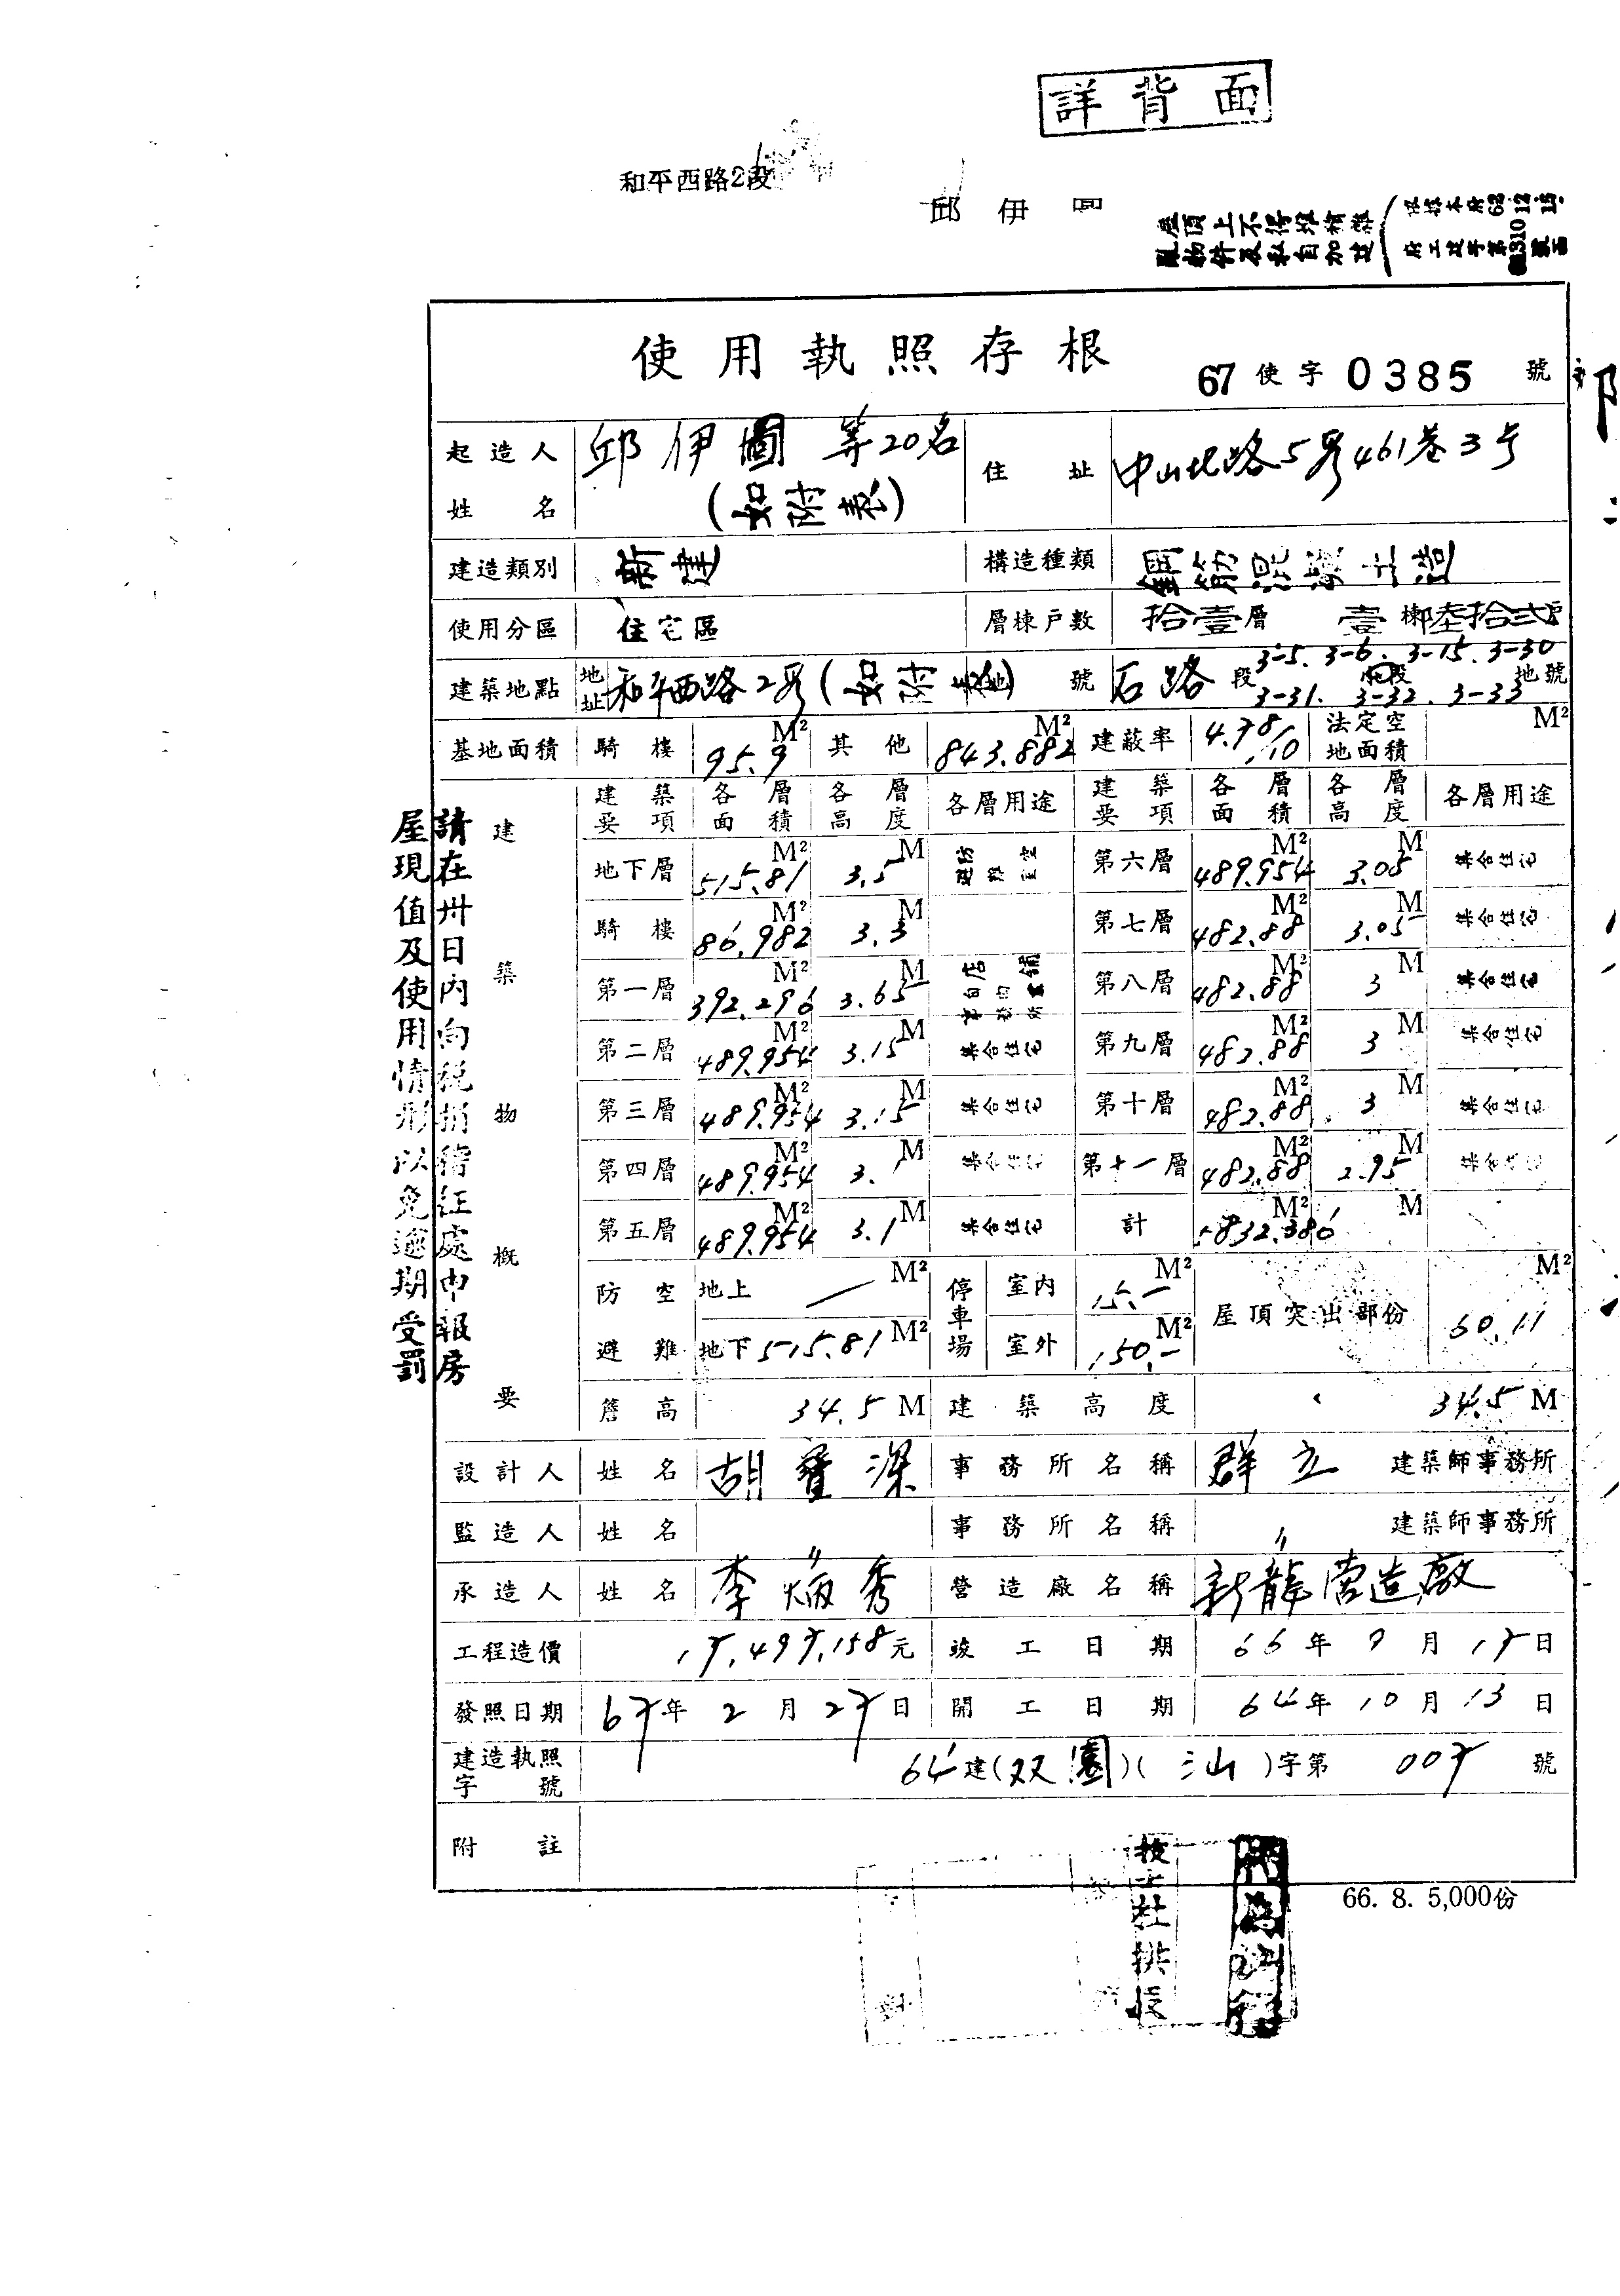 詳背面
和平西路2段
邱伊
屋頂上不得堆積雜
亂物件及私自加建
使用執照存根
67使字0385號
起造人姓名 邱伊圖等20名(如附表) 住址 中山北路5段461巷3号
建造類別 新建 構造種類 鋼筋混凝土造
使用分區 住宅區 層棟戶數 拾壹層壹棟叁拾弍戶
建築地點 地址 和平西路2段(如附 號 石路段 3-5. 3-6. 3-15. 3-30 3-31. 3-32. 3-33 地號
基地面積 騎樓 95.9 M² 其他 843.882 M² 建蔽率 4.78/10 法定空地面積 M²
建築物概要
建築要項 各層面積 各層高度 各層用途 建築要項 各層面積 各層高度 各層用途
地下層 515.81 M² 3.5 M 避難室 第六層 489.954 M² 3.05 M 集合住宅
騎樓 86.982 M² 3.3 M 第七層 482.88 M² 3.05 M 集合住宅
第一層 392.296 M² 3.65 M 店舖 第八層 482.88 M² 3 M 集合住宅
第二層 489.954 M² 3.15 M 集合住宅 第九層 482.88 M² 3 M 集合住宅
第三層 489.954 M² 3.15 M 集合住宅 第十層 482.88 M² 3 M 集合住宅
第四層 489.954 M² 3.1 M 集合住宅 第十一層 482.88 M² 2.95 M 集合住宅
第五層 489.954 M² 3.1 M 集合住宅 計 5832.386 M² M
防空避難 地上 — M² 停車場 室內 15.— M² 屋頂突出部份 60.11 M²
地下 515.81 M² 室外 150.— M²
簷高 34.5 M 建築高度 34.5 M
設計人 姓名 胡寶深 事務所名稱 群立 建築師事務所
監造人 姓名 〃 事務所名稱 〃 建築師事務所
承造人 姓名 李炳秀 營造廠名稱 新龍营造廠
工程造價 17,497,158元 竣工日期 66年9月17日
發照日期 67年2月27日 開工日期 64年10月13日
建造執照字號 64建(双園)(汕)字第007號
附註
請在卅日內向稅捐稽征處申報房
屋現值及使用情形以免逾期受罰
66. 8. 5,000份